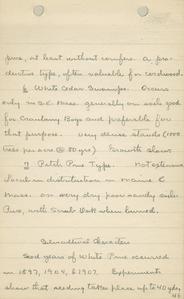 pine, at least without conifers. A pro-
ductive type, often valuable for cordwood.
6 White Cedar Swamps. Occurs
only in S.E. Mass. generally on soils good
for Cranberry Bogs and preferable for
that purpose. Very dense stands (1000
trees per acre @ 80 yrs). Growth slow.
7 Pitch Pine Type. Not extensive
Local in distribution in Maine &
Mass. on very dry poor sandy soils.
Pure, with Scrub Oak when burned.
Silvicultural Characters
Seed years of White Pine occurred
in 1897, 1904, & 1907. Experiments
show that seeding takes place up to 40 yds,